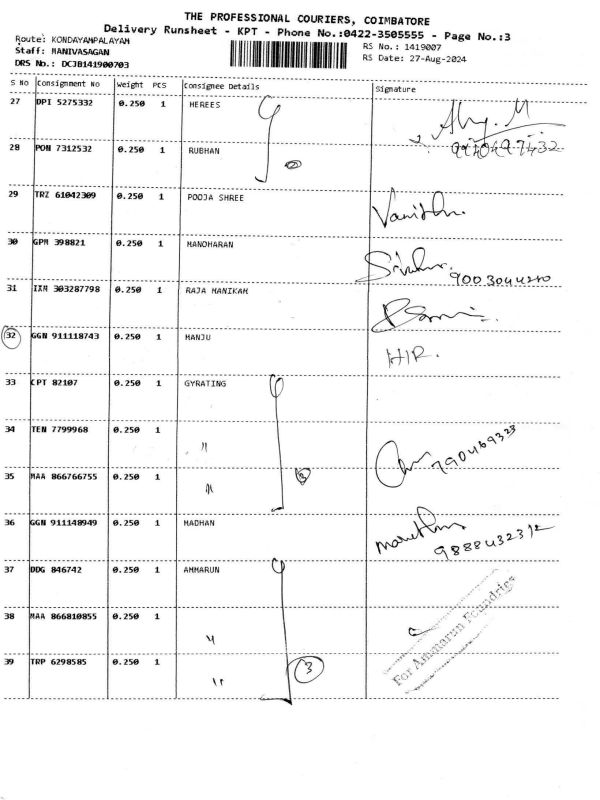 THE PROFESSIONAL COURIERS, COIMBATORE
Delivery Runsheet - KPT - Phone No.:0422-3505555 - Page No.:3
Route: KONDAYAMPALAYAM
Staff: MANIVASAGAN
DRS No.: DCJB141900703
RS No.: 1419007
RS Date: 27-Aug-2024
S No Consignment No Weight PCS Consignee Details Signature
27 DPI 5275332 0.250 1 HEREES
28 PON 7312532 0.250 1 RUBHAN
29 TRZ 61042309 0.250 1 POOJA SHREE
30 GPM 398821 0.250 1 MANOHARAN
9003044210
31 IXM 303287798 0.250 1 RAJA MANIKAM
32 GGN 911118743 0.250 1 MANJU
H/R.
33 CPT 82107 0.250 1 GYRATING
34 TEN 7799968 0.250 1 "
35 MAA 866766755 0.250 1 " 3
36 GGN 911148949 0.250 1 MADHAN
37 DDG 846742 0.250 1 AMMARUN
38 MAA 866810855 0.250 1 "
39 TRP 6298585 0.250 1 " 3
For Ammarun Foundries